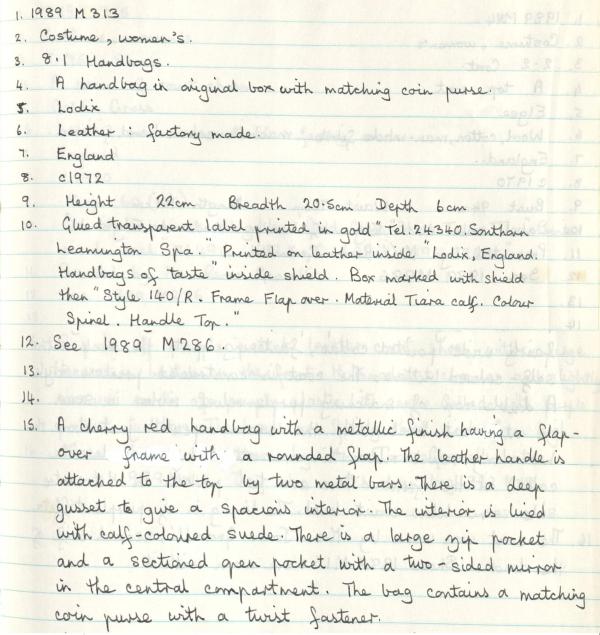 1. 1989 M313
2. Costume, women's.
3. 8.1 Handbags.
4. A handbag in original box with matching coin purse.
5. Lodix
6. Leather : factory made.
7. England
8. c1972
9. Height 22cm Breadth 20.5cm Depth 6cm
10. Glued transparent label printed in gold "Tel: 24340. Southorn
Leamington Spa." Printed on leather inside "Lodix, England.
Handbags of taste" inside shield. Box marked with shield
then "Style 140/R. Frame Flap over. Material Tiara calf. Colour
Spinel. Handle Top."
12. See 1989 M286.
13.
14.
15. A cherry red handbag with a metallic finish having a flap-
over frame with a rounded flap. The leather handle is
attached to the top by two metal bars. There is a deep
gusset to give a spacious interior. The interior is lined
with calf-coloured suede. There is a large zip pocket
and a sectioned open pocket with a two-sided mirror
in the central compartment. The bag contains a matching
coin purse with a twist fastener.